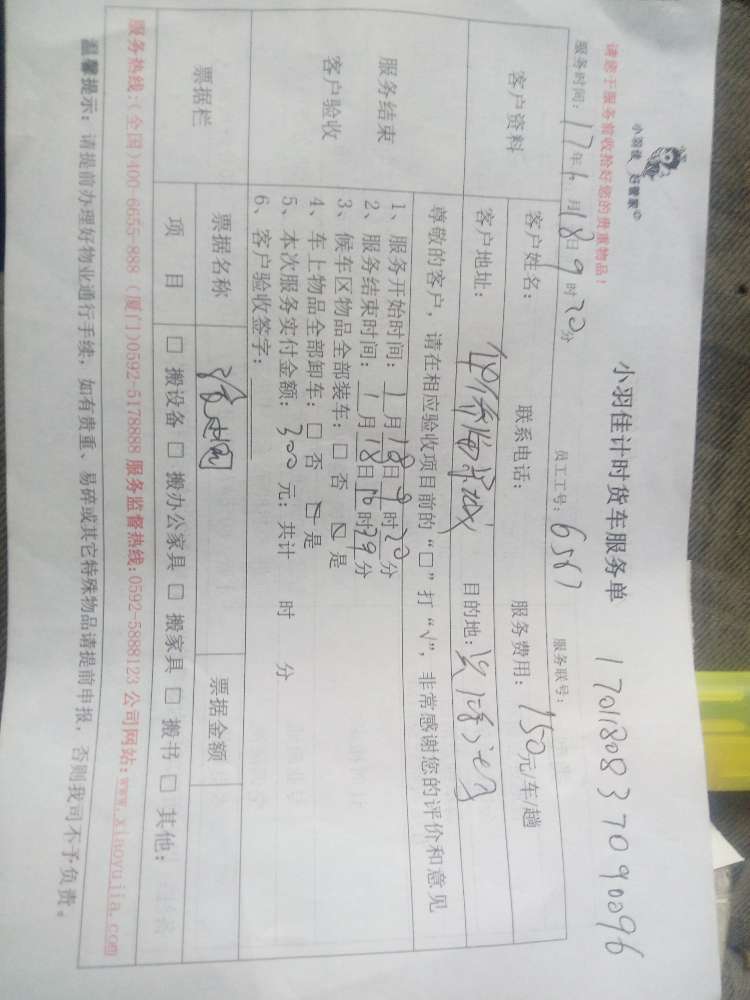 小羽佳 好管家
小羽佳计时货车服务单 17011808370900296
请您于服务前收拾好您的贵重物品！
服务时间：17年1月18日9时20分 员工工号：6567 服务联号：
客户资料
客户姓名： 联系电话： 服务费用：150元/车/趟
客户地址： 目的地：
服务结束
客户验收
尊敬的客户，请在相应验收项目前的“□”打“√”，非常感谢您的评价和意见
1、服务开始时间：1月18日9时20分
2、服务结束时间：1月18日10时29分
3、候车区物品全部装车：□ 否 ☑ 是
4、车上物品全部卸车：□ 否 ☑ 是
5、本次服务实付金额：300元；共计 时 分
6、客户验收签字：
票据栏
票据名称 票据金额
项 目 □ 搬设备 □ 搬办公家具 □ 搬家具 □ 搬书 □ 其他：
服务热线：(全国)400-6655-888 (厦门)0592-5178888 服务监督热线：0592-5888123 公司网站：www.xiaoyujia.com
温馨提示：请提前办理好物业通行手续，如有贵重、易碎或其它特殊物品请提前申报，否则我司不予负责。